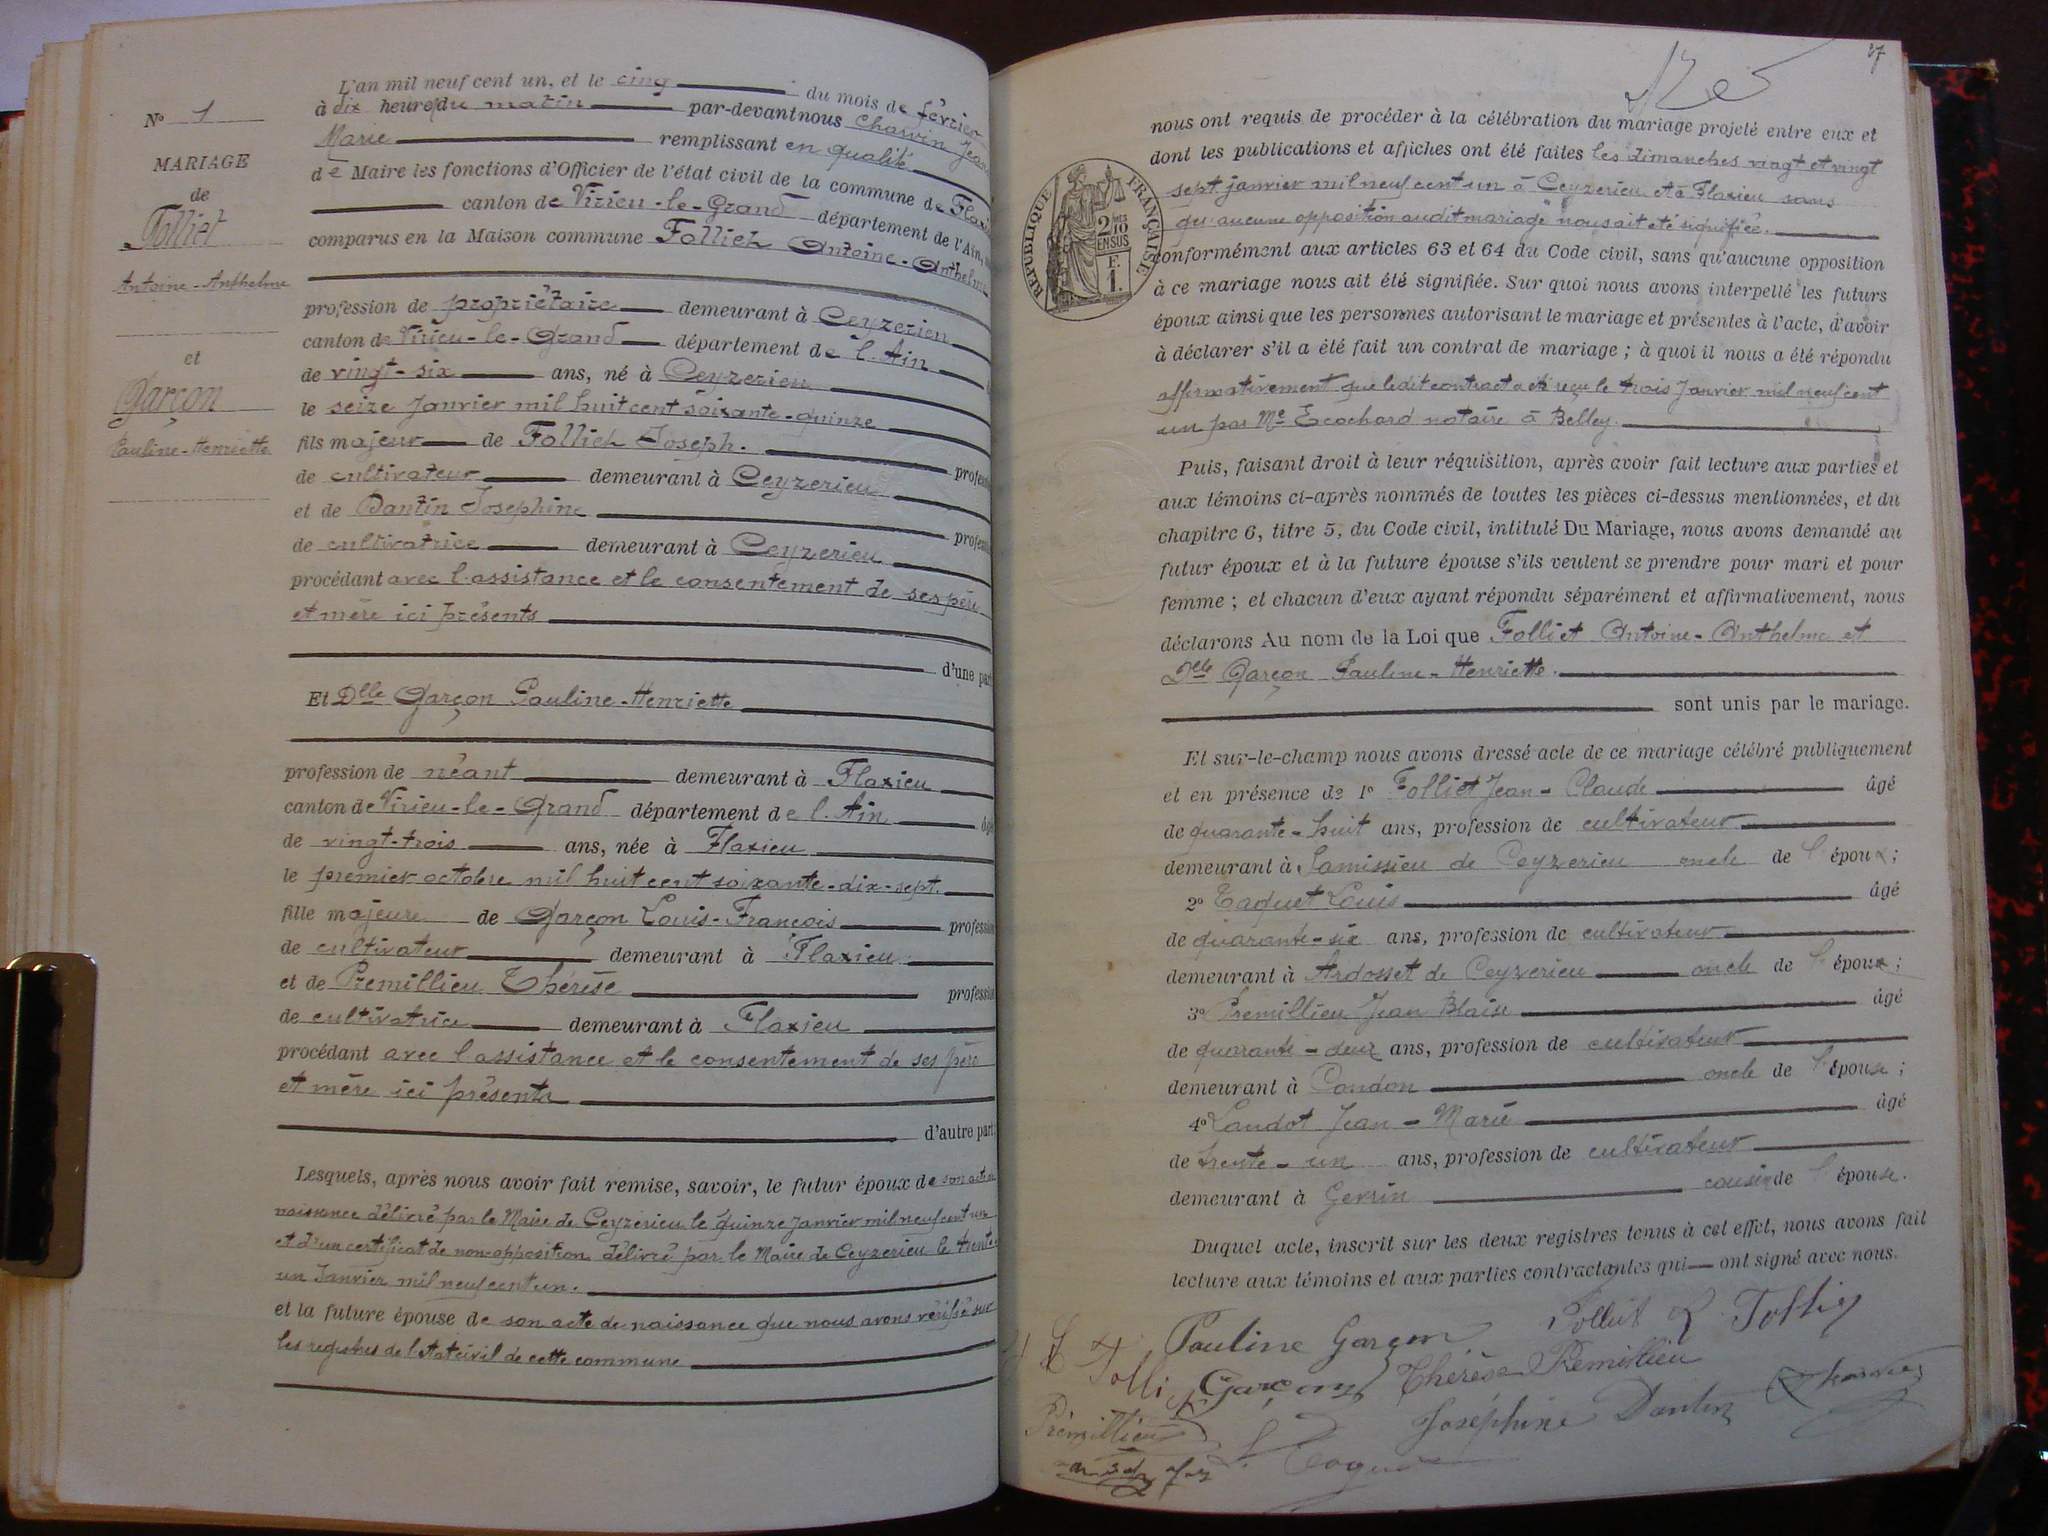 N° 1
MARIAGE
de
Folliet
Antoine-Anthelme
et
Garçon
Pauline-Henriette
L'an mil neuf cent un, et le cinq du mois de février
à dix heures du matin par-devant nous Charvin Jean
Marie remplissant en qualité
de Maire les fonctions d'Officier de l'état civil de la commune de Flaxieu
canton de Virieu-le-Grand département de l'Ain,
comparus en la Maison commune Folliet Antoine-Anthelme
profession de propriétaire demeurant à Ceyzerieu
canton de Virieu-le-Grand département de l'Ain
de vingt-six ans, né à Ceyzerieu
le seize Janvier mil huit cent soixante-quinze
fils majeur de Folliet Joseph.
de cultivateur demeurant à Ceyzerieu
et de Dantin Josephine
de cultivatrice demeurant à Ceyzerieu
procédant avec l'assistance et le consentement de ses père
et mère ici présents
d'une part
Et Dlle Garçon Pauline-Henriette
profession de néant demeurant à Flaxieu
canton de Virieu-le-Grand département de l'Ain
de vingt-trois ans, née à Flaxieu
le premier octobre mil huit cent soixante-dix-sept.
fille majeure de Garçon Louis-François profession
de cultivateur demeurant à Flaxieu
et de Premillieu Thérèse profession
de cultivatrice demeurant à Flaxieu
procédant avec l'assistance et le consentement de ses père
et mère ici présents
d'autre part
Lesquels, après nous avoir fait remise, savoir, le futur époux de son acte de
naissance délivré par le Maire de Ceyzerieu le quinze janvier mil neuf cent un
et d'un certificat de non-opposition délivré par le Maire de Ceyzerieu le trente
un Janvier mil neuf cent un.
et la future épouse de son acte de naissance que nous avons vérifié sur
les registres de l'état civil de cette commune
27
RÉPUBLIQUE FRANÇAISE
2/10
EN SUS
E.
1.
nous ont requis de procéder à la célébration du mariage projeté entre eux et
dont les publications et affiches ont été faites les dimanches vingt et vingt
sept janvier mil neuf cent un à Ceyzerieu et à Flaxieu sans
qu'aucune opposition audit mariage nous ait été signifiée.
conformément aux articles 63 et 64 du Code civil, sans qu'aucune opposition
à ce mariage nous ait été signifiée. Sur quoi nous avons interpellé les futurs
époux ainsi que les personnes autorisant le mariage et présentes à l'acte, d'avoir
à déclarer s'il a été fait un contrat de mariage ; à quoi il nous a été répondu
affirmativement que ledit contract a été reçu le trois Janvier mil neuf cent
un par Me Ecochard notaire à Belley.
Puis, faisant droit à leur réquisition, après avoir fait lecture aux parties et
aux témoins ci-après nommés de toutes les pièces ci-dessus mentionnées, et du
chapitre 6, titre 5, du Code civil, intitulé Du Mariage, nous avons demandé au
futur époux et à la future épouse s'ils veulent se prendre pour mari et pour
femme ; et chacun d'eux ayant répondu séparément et affirmativement, nous
déclarons Au nom de la Loi que Folliet Antoine-Anthelme et
Dlle Garçon Pauline-Henriette.
sont unis par le mariage.
Et sur-le-champ nous avons dressé acte de ce mariage célébré publiquement
et en présence de 1° Folliet Jean-Claude âgé
de quarante-huit ans, profession de cultivateur
demeurant à Lamissieu de Ceyzerieu oncle de l'époux ;
2° Taquet Louis âgé
de quarante-six ans, profession de cultivateur
demeurant à Ardosset de Ceyzerieu oncle de l'époux ;
3° Premillieu Jean Blaise âgé
de quarante-deux ans, profession de cultivateur
demeurant à Condon oncle de l'épouse ;
4° Landot Jean-Marie âgé
de trente-un ans, profession de cultivateur
demeurant à Gevrin cousin de l'épouse.
Duquel acte, inscrit sur les deux registres tenus à cet effet, nous avons fait
lecture aux témoins et aux parties contractantes qui ont signé avec nous.
Pauline Garçon Folliet
Garçon Thérèse Premillieu
Joséphine Dantin
Prémillieu